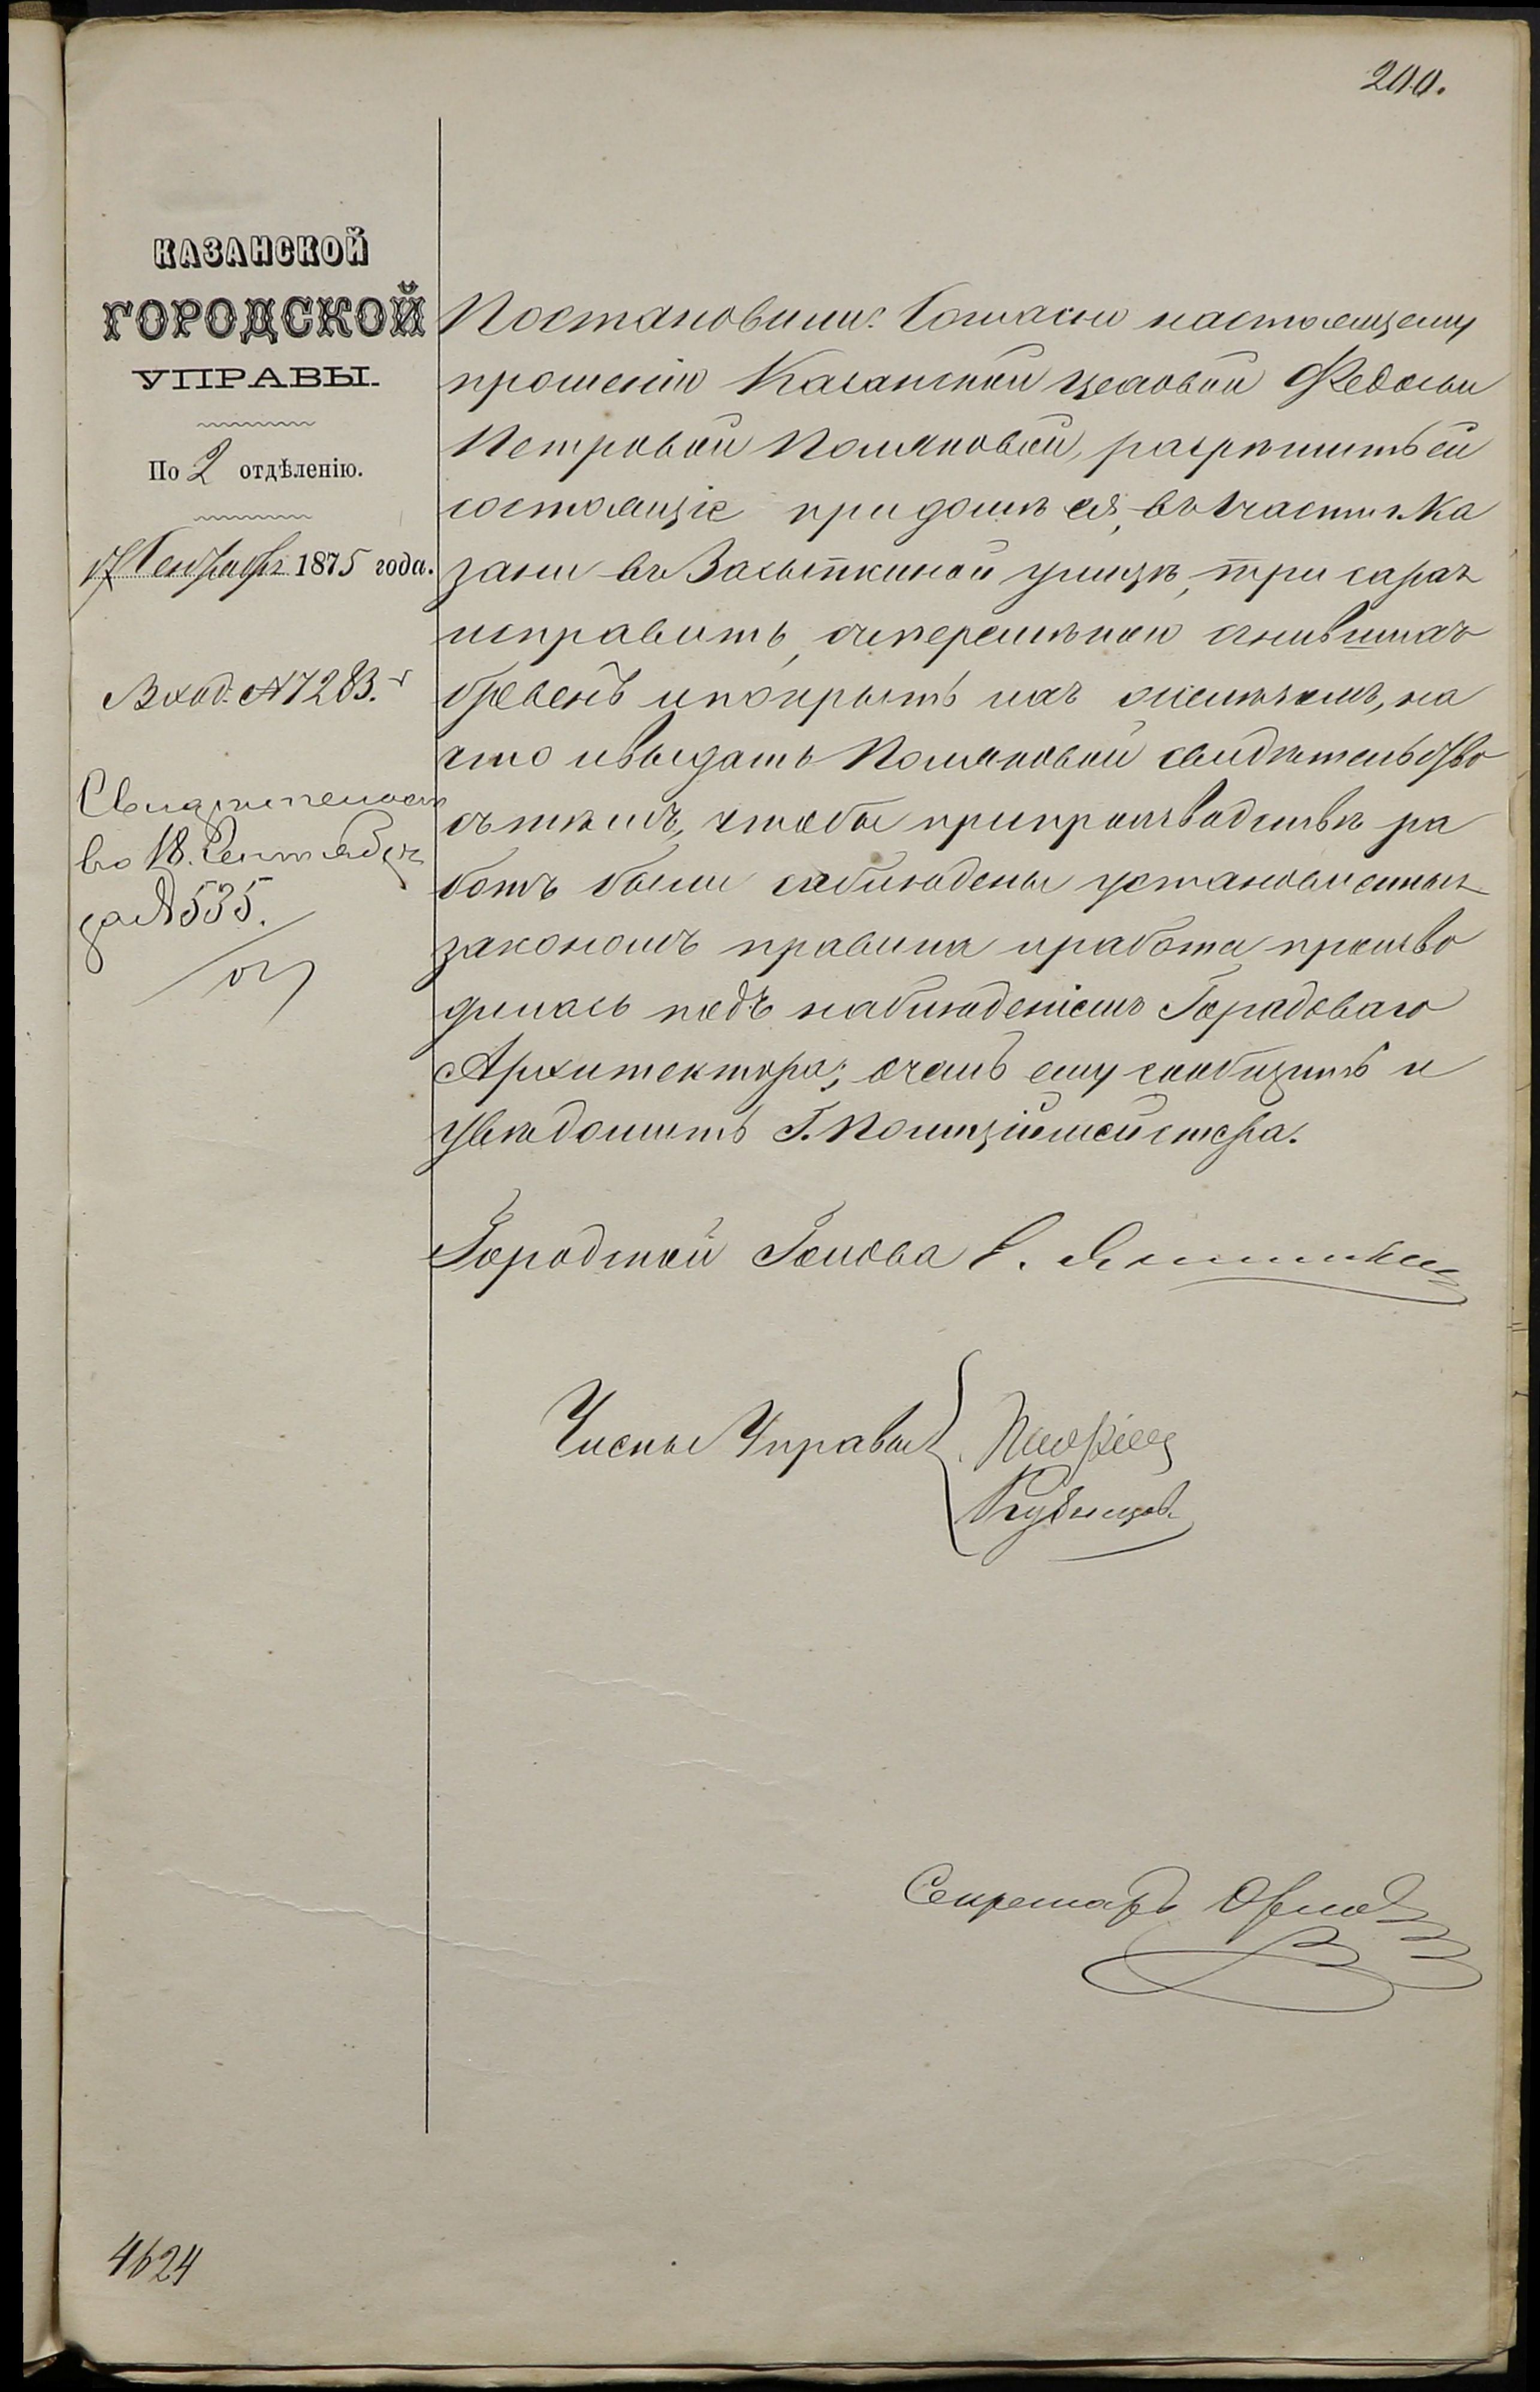 200.
КАЗАНСКОЙ
ГОРОДСКОЙ
УПРАВЫ.
По 2 отдѣленію.
17 Сентября 1875 года.
Вход. № 7283.
Свидѣтельст
во 18. Сентября
за № 535.
Постановили: Согласно настоящему
прошенію Казанской цеховой Федосьи
Петровой Поляковой, разрѣшить ей
состоящіе при домѣ ея, въ части г. Ка
зани въ Засыпкиной улицѣ, три сарая
исправить, съ перемѣною сгнившихъ
бревенъ и покрыть ихъ желѣзомъ, на
что и выдать Поляковой свидѣтельство
съ тѣмъ, чтобы при производствѣ ра
ботъ были соблюдены установленныя
закономъ правила и работа произво
дилась подъ наблюденіемъ Городоваго
Архитектора; о чемъ ему сообщить и
увѣдомить Г. Полиціймейстера.
Городской Голова
Члены Управы
Секретарь Орлов
4624